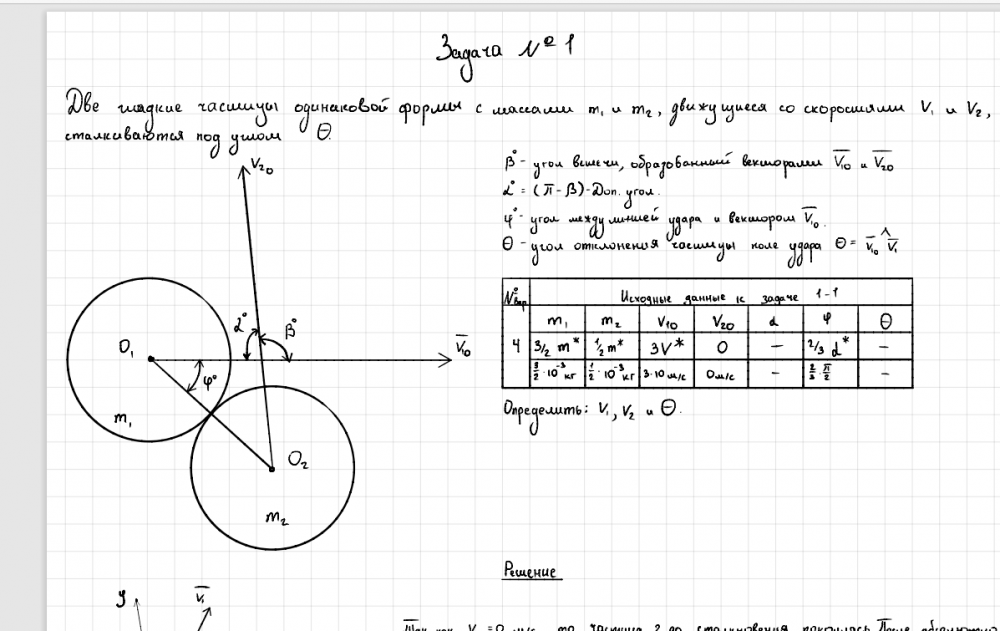 Задача №1
Две гладкие частицы одинаковой формы с массами m₁ и m₂, движущиеся со скоростями V₁ и V₂,
сталкиваются под углом Θ.
V₂₀
β° - угол встречи, образованный векторами V̅₁₀ и V̅₂₀
α° = (π - β) - Доп. угол.
φ° - угол между линией удара и вектором V̅₁₀.
Θ - угол отклонения частицы после удара Θ = V̅₁₀ ^ V̅₁
№ вар Исходные данные к задаче 1-1
m₁ m₂ V₁₀ V₂₀ α φ Θ
4 3/2 m* 1/2 m* 3V* 0 — 2/3 α* —
3/2 · 10⁻³ кг 1/2 · 10⁻³ кг 3·10 м/с 0 м/с — 2/3 π/2 —
Определить: V₁, V₂ и Θ.
α° β°
O₁ V̅₁₀
φ°
m₁
O₂
m₂
Решение
y V̅₁